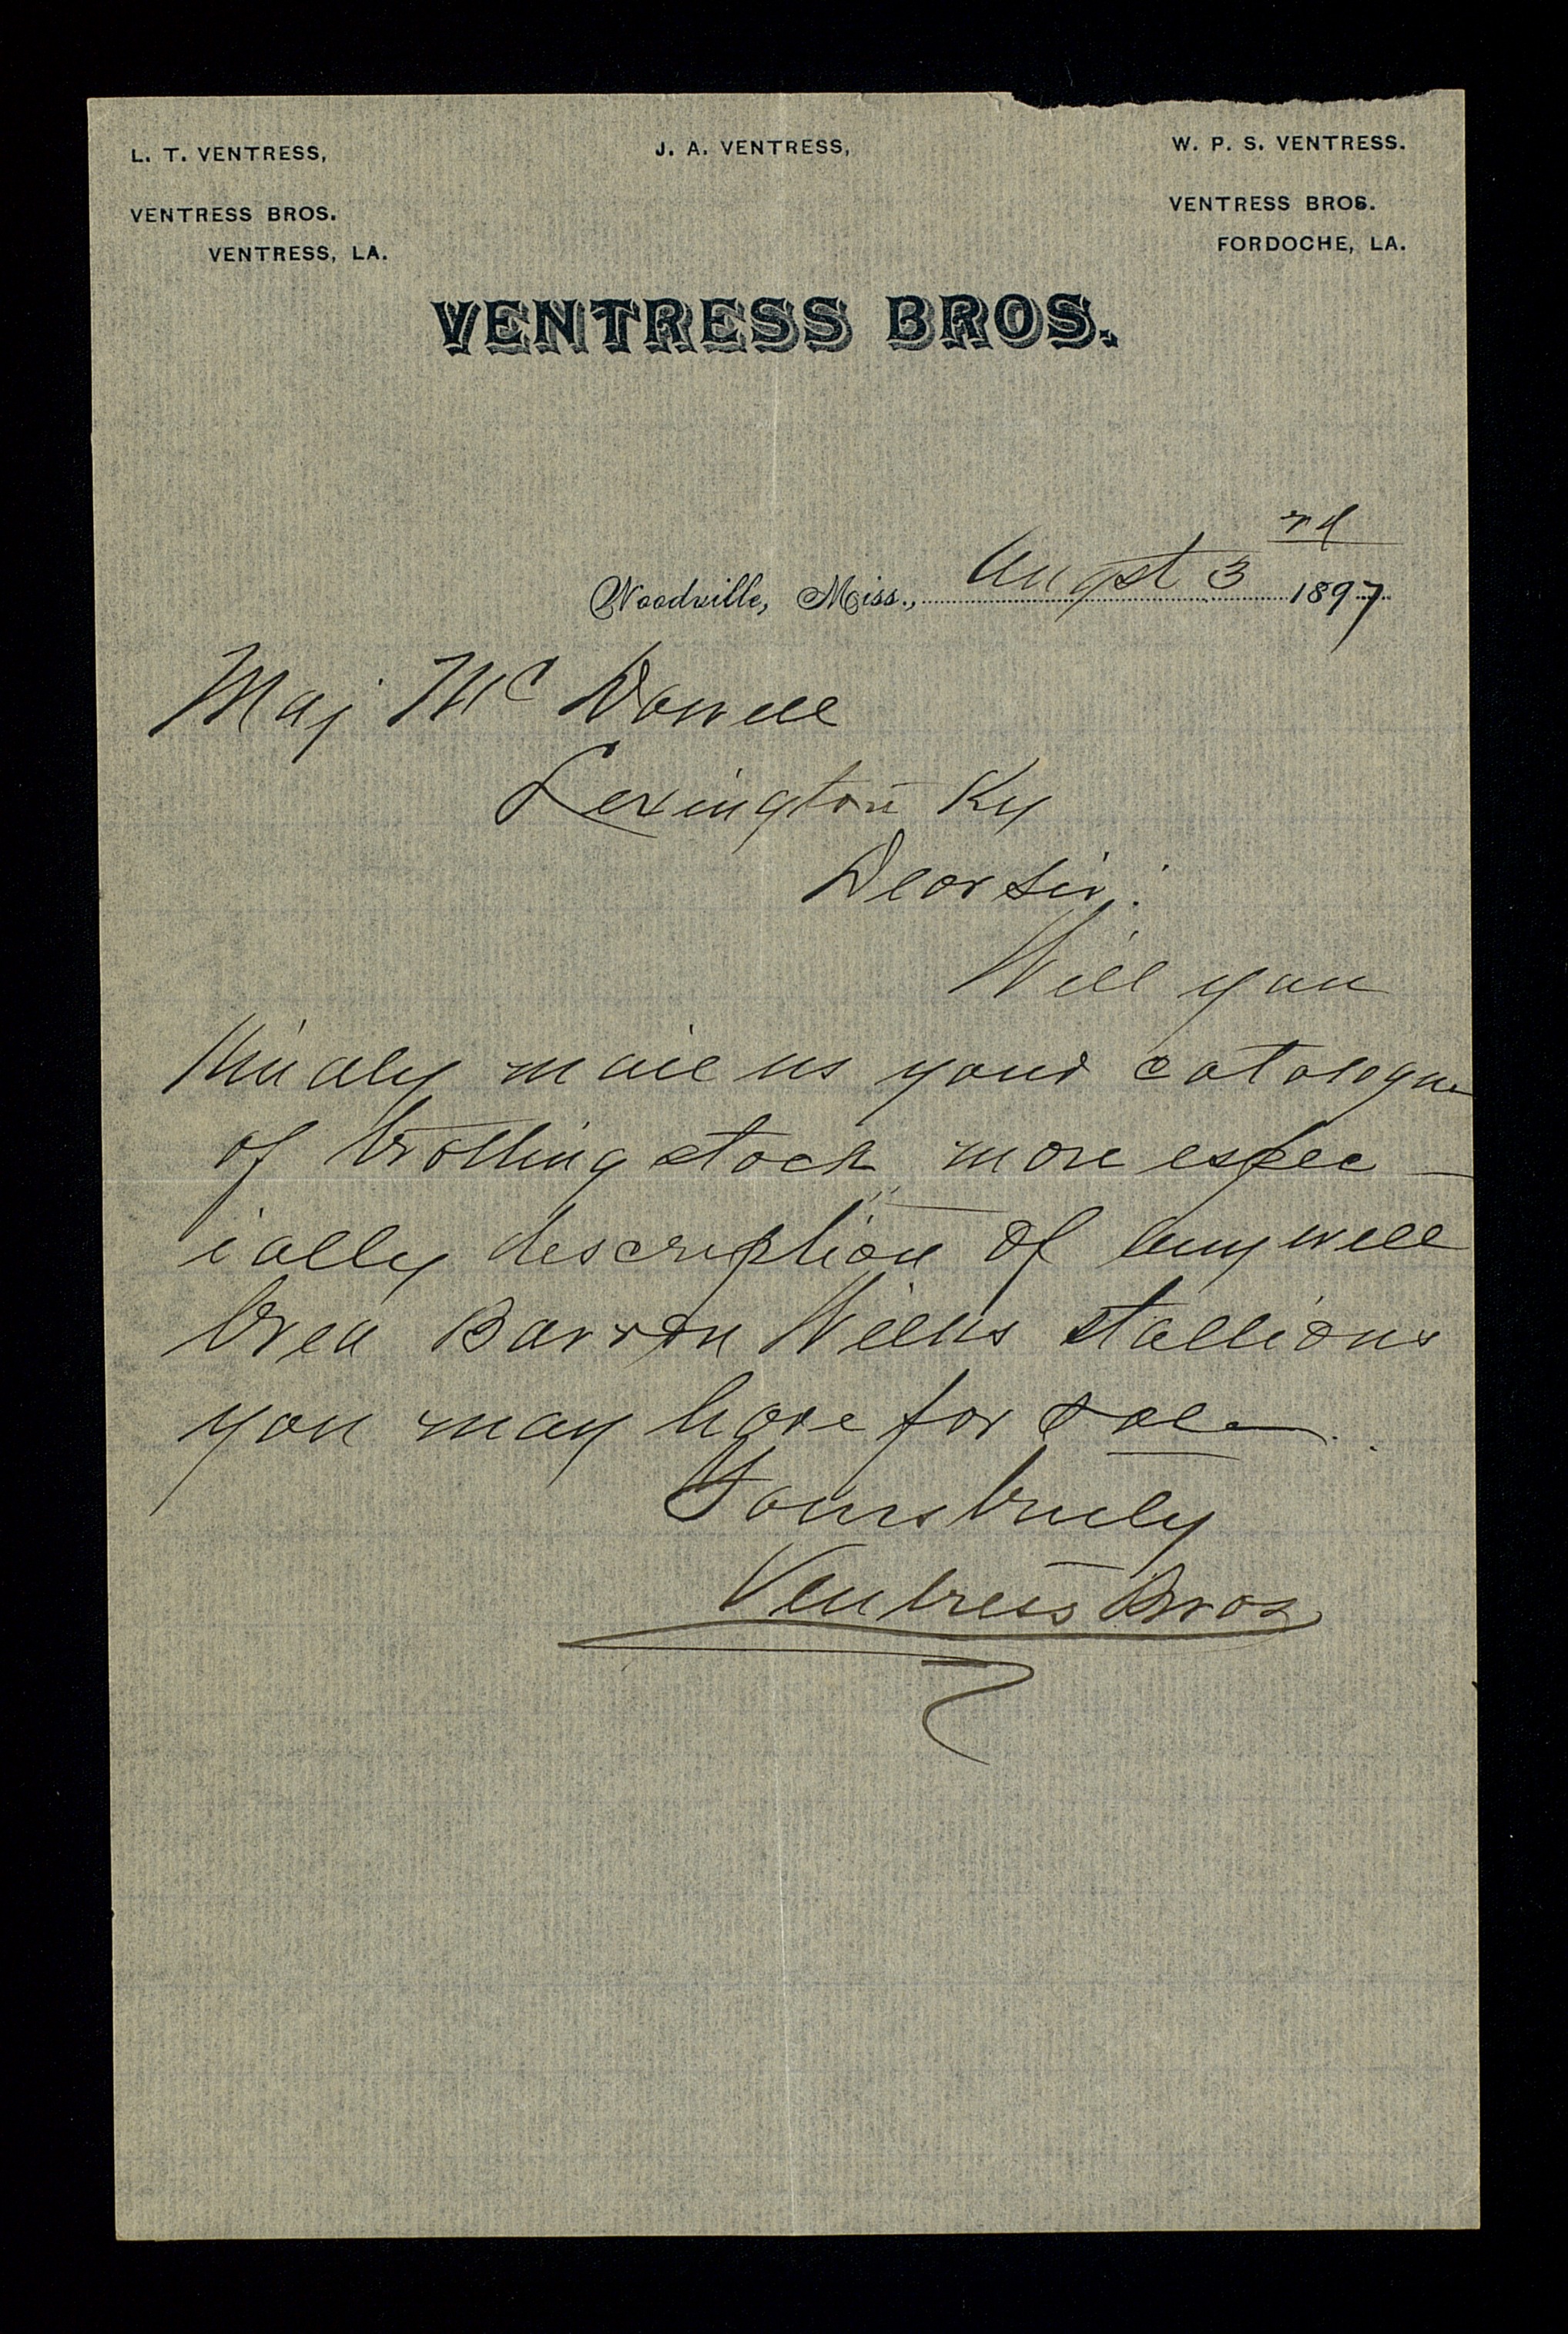 L. T. VENTRESS,
J. A. VENTRESS,
W. P. S. VENTRESS.
VENTRESS BROS.
VENTRESS, LA.
VENTRESS BROS.
FORDOCHE, LA.
VENTRESS BROS.
Woodville, Miss., Augst 3rd 1897
Maj Mc Dowell
Lexington Ky
Dear Sir:
Will you
kindly mail us your catalogue
of trotting stock more espec-
ially description of any well
bred Barron Wilks stallions
you may have for sale.
Yours truly
Ventress Bros